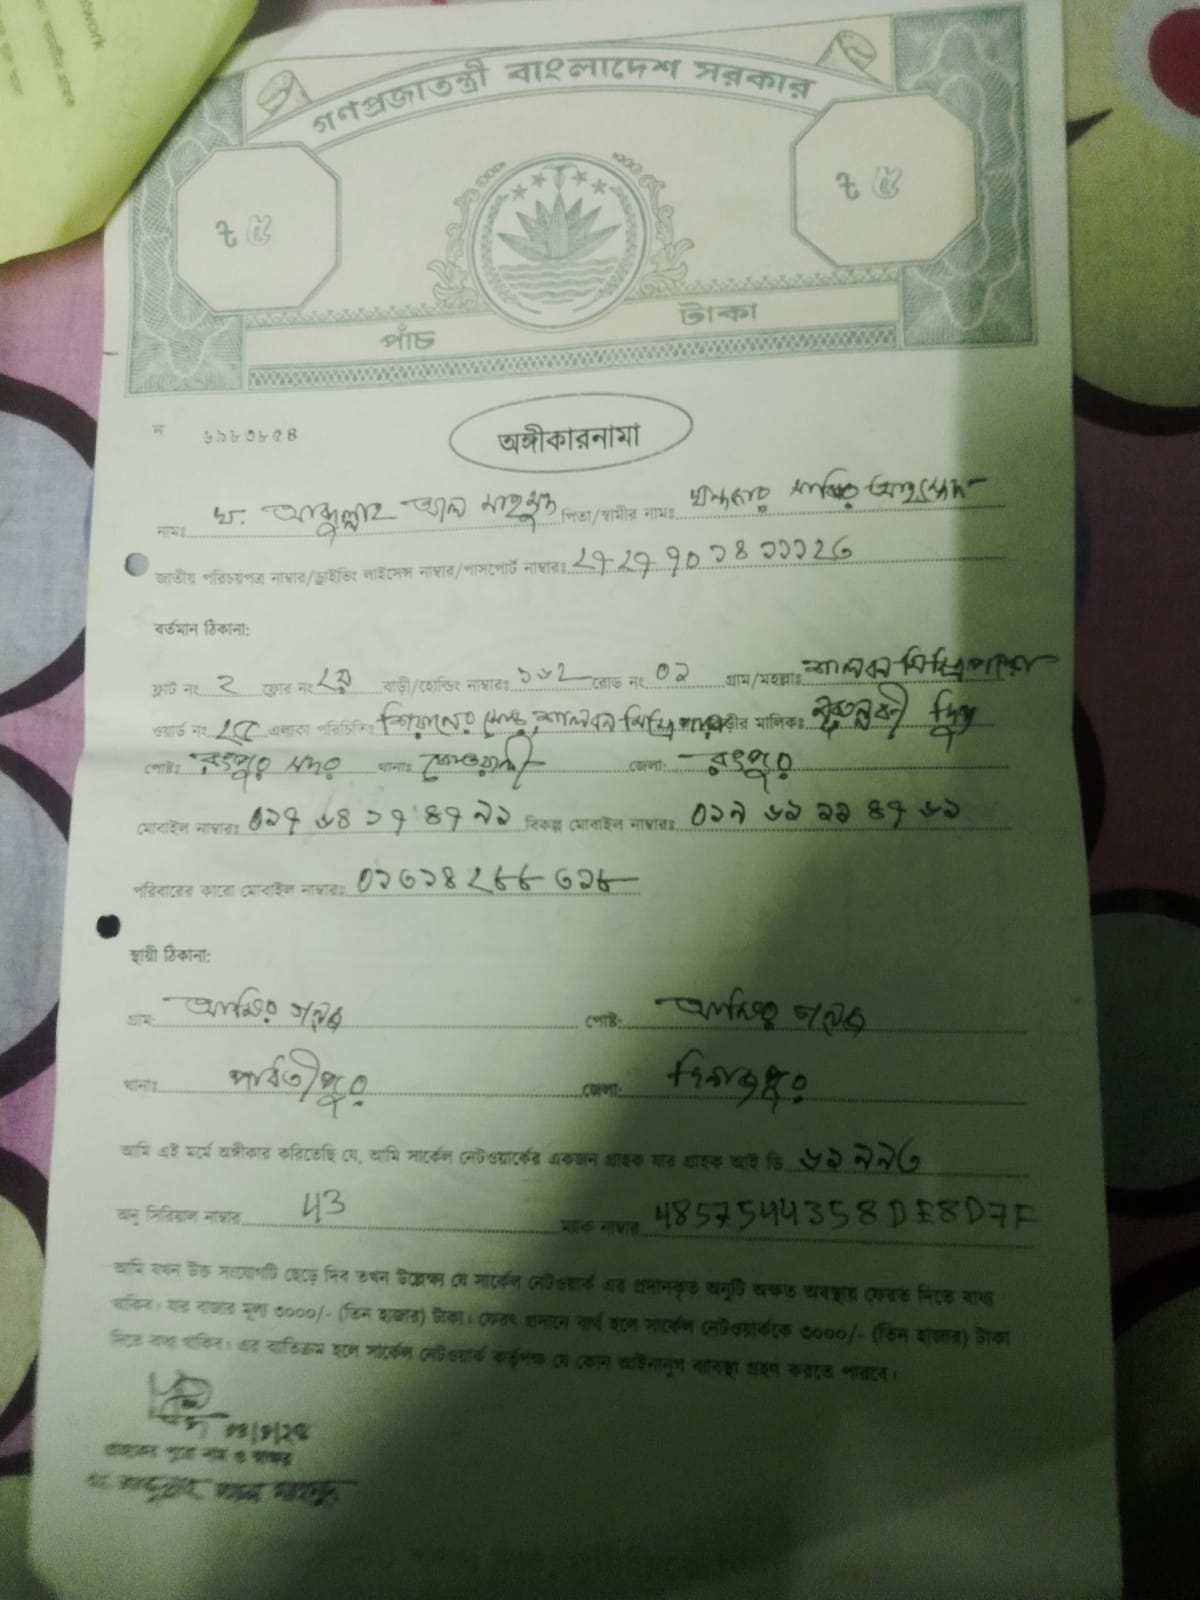 গণপ্রজাতন্ত্রী বাংলাদেশ সরকার
৳ ৫ ৳ ৫
পাঁচ টাকা
৬৯৮৩৮৫৪
অঙ্গীকারনামা
নামঃ খ. আব্দুল্লাহ আল মাহমুদ পিতা/স্বামীর নামঃ খন্দকার সাব্বির আহম্মেদ
জাতীয় পরিচয়পত্র নাম্বার/ড্রাইভিং লাইসেন্স নাম্বার/পাসপোর্ট নাম্বারঃ
বর্তমান ঠিকানা:
ফ্লাট নং ২ ফ্লোর নং ২য় বাড়ী/হোল্ডিং নাম্বারঃ ১৬২ রোড নং ০১ গ্রাম/মহল্লাঃ শালবন মিস্ত্রিপাড়া
ওয়ার্ড নং এলাকা পরিচিতি: শালবন মিস্ত্রিপাড়া বাড়ীর মালিক:
পোষ্টঃ রংপুর সদর থানাঃ কোতয়ালী জেলা: রংপুর
মোবাইল নাম্বারঃ ০১৭৬৪১৭৪৭৯১ বিকল্প মোবাইল নাম্বারঃ
পরিবারের কারো মোবাইল নাম্বারঃ
স্থায়ী ঠিকানা:
গ্রাম: পোষ্ট:
থানাঃ পার্বতীপুর জেলা: দিনাজপুর
আমি এই মর্মে অঙ্গীকার করিতেছি যে, আমি সার্কেল নেটওয়ার্কের একজন গ্রাহক যার গ্রাহক আই ডি ৬১৯৯৩
অনু সিরিয়াল নাম্বার 43 ম্যাক নাম্বার 4857544358DE8D7F
আমি যখন উক্ত সংযোগটি ছেড়ে দিব তখন উল্লেক্ষ্য যে সার্কেল নেটওয়ার্ক এর প্রদানকৃত অনুটি অক্ষত অবস্থায় ফেরত দিতে বাধ্য
থাকিব। যার বাজার মূল্য ৩০০০/- (তিন হাজার) টাকা। ফেরৎ প্রদানে ব্যর্থ হলে সার্কেল নেটওয়ার্ককে ৩০০০/- (তিন হাজার) টাকা
দিতে বাধ্য থাকিব। এর ব্যতিক্রম হলে সার্কেল নেটওয়ার্ক কর্তৃপক্ষ যে কোন আইনানুগ ব্যবস্থা গ্রহণ করতে পারবে।
গ্রাহকের পুরো নাম ও স্বাক্ষর